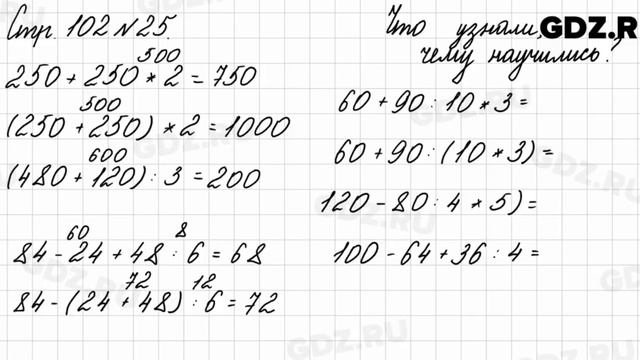 Стр. 102 №25.
500
250 + 250 * 2 = 750
500
(250 + 250) * 2 = 1000
600
(480 + 120) : 3 = 200
60 8
84 - 24 + 48 : 6 = 68
72 12
84 - (24 + 48) : 6 = 72
Что узнали,
чему научились?
60 + 90 : 10 * 3 =
60 + 90 : (10 * 3) =
120 - 80 : 4 * 5) =
100 - 64 + 36 : 4 =
GDZ.R
GDZ.RU
GDZ.RU
GDZ.RU
GDZ.RU